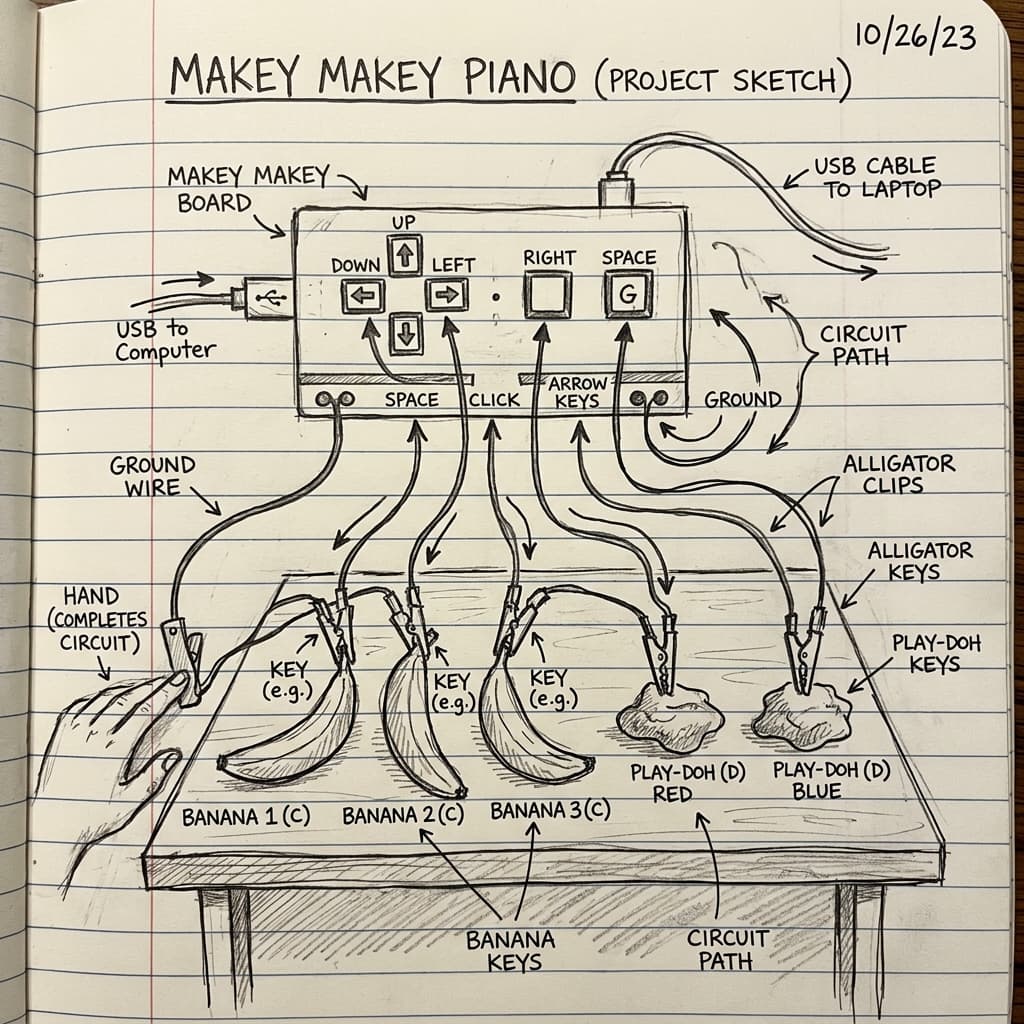 10/26/23
MAKEY MAKEY PIANO (PROJECT SKETCH)
MAKEY MAKEY
BOARD
USB CABLE
TO LAPTOP
UP
DOWN
LEFT
RIGHT
SPACE
G
USB to
Computer
CIRCUIT
PATH
SPACE
CLICK
ARROW
KEYS
GROUND
GROUND
WIRE
ALLIGATOR
CLIPS
ALLIGATOR
KEYS
HAND
(COMPLETES
CIRCUIT)
KEY
(e.g.)
KEY
(e.g.)
KEY
(e.g.)
PLAY-DOH
KEYS
PLAY-DOH (D)
RED
PLAY-DOH (D)
BLUE
BANANA 1 (C)
BANANA 2 (C)
BANANA 3 (C)
BANANA
KEYS
CIRCUIT
PATH